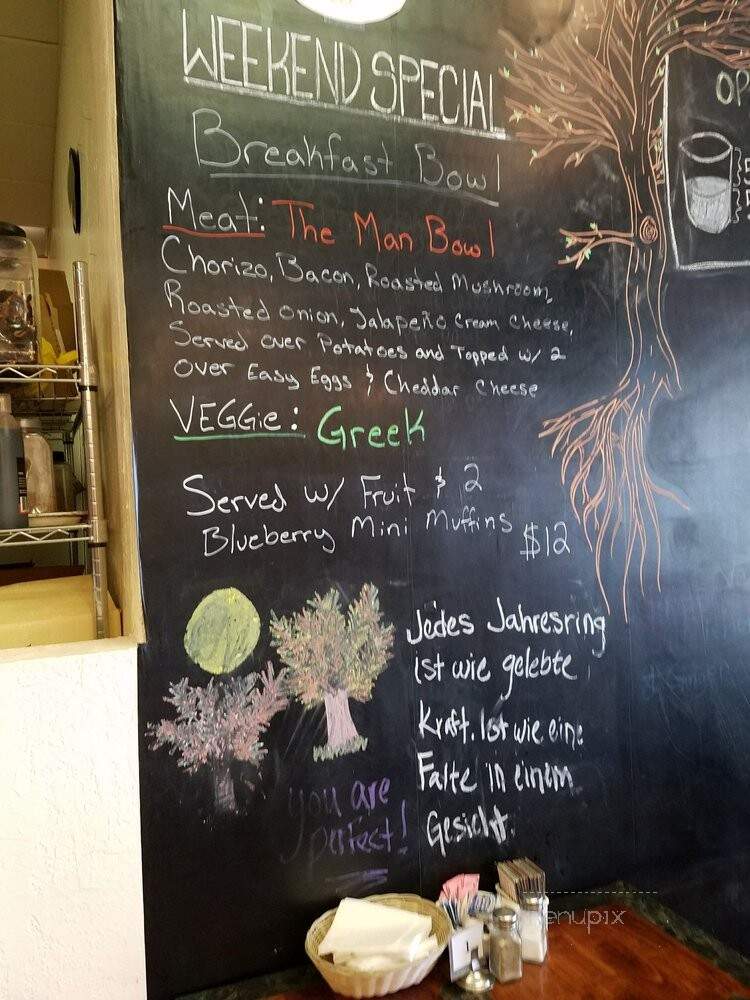 WEEKEND SPECIAL
Breakfast Bowl
Meat: The Man Bowl
Chorizo, Bacon, Roasted Mushroom,
Roasted Onion, Jalapeño Cream Cheese,
Served over Potatoes and Topped w/ 2
over Easy Eggs & Cheddar Cheese
VEGGie: Greek
Served w/ Fruit & 2
Blueberry Mini Muffins $12
Jedes Jahresring
ist wie gelebte
Kraft. Ist wie eine
Falte in einem
Gesicht.
you are
perfect!
OP
menupix